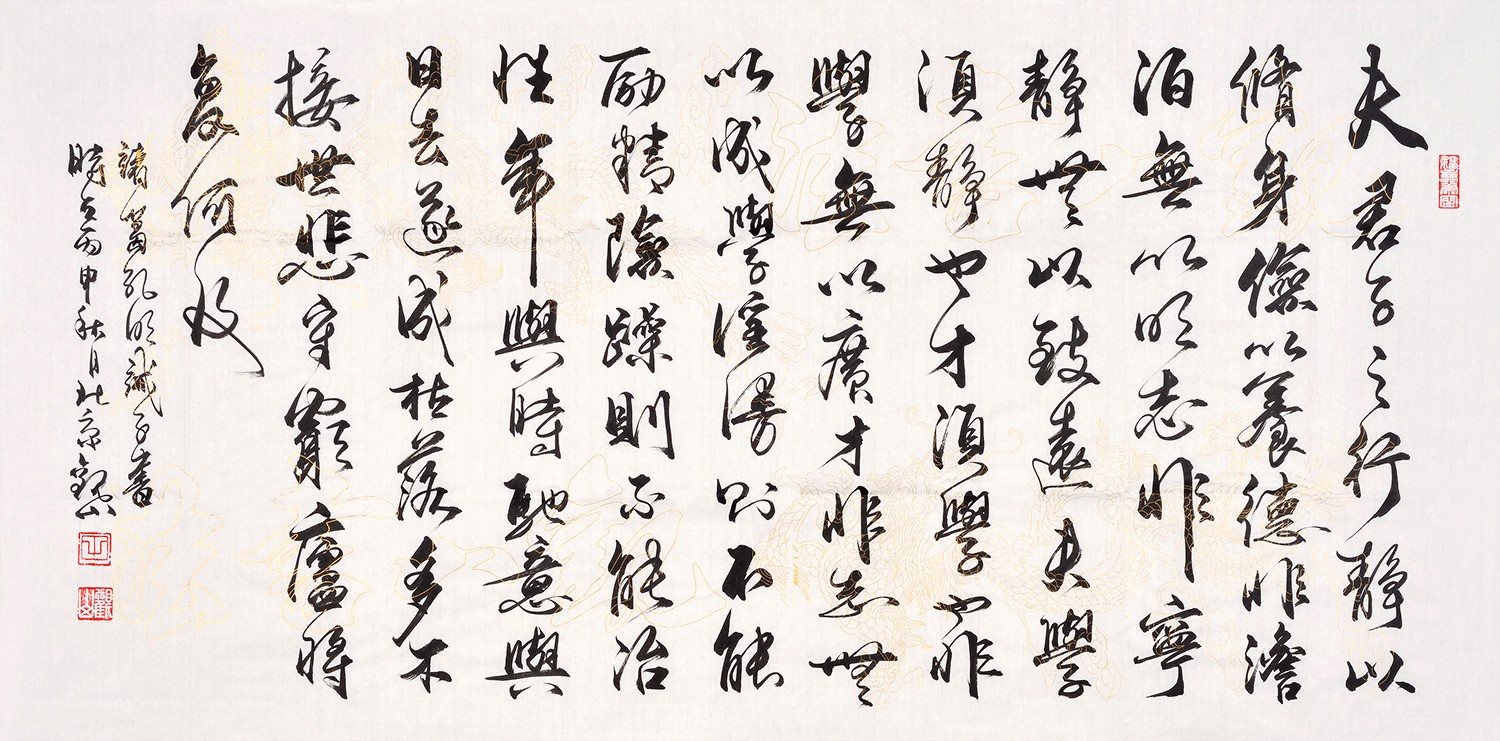 夫君子之行靜以
脩身儉以養德非澹
泊無以明志非寧
靜無以致遠夫學
須靜也才須學也非
學無以廣才非志無
以成學淫慢則不能
励精險躁則不能冶
性年與時馳意與
日去遂成枯落多不
接世悲守窮廬將
復何及
諸葛孔明誡子書
時在丙申秋月北京觀山
觀山